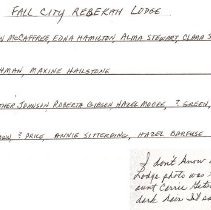 FALL CITY REBEKAH LODGE
N MCCAFFREE, EDNA HAMILTON, ALMA STEWART, CLARA S
HMAN, MAXINE HAILSTONE
THER JOHNSIN ROBERTA GIBSON HAZEL MOORE, ? GREEN,
? PRICE, ANNIE SITTERDING, HAZEL
I don't know
Lodge photo was
aunt Carrie
dark hair